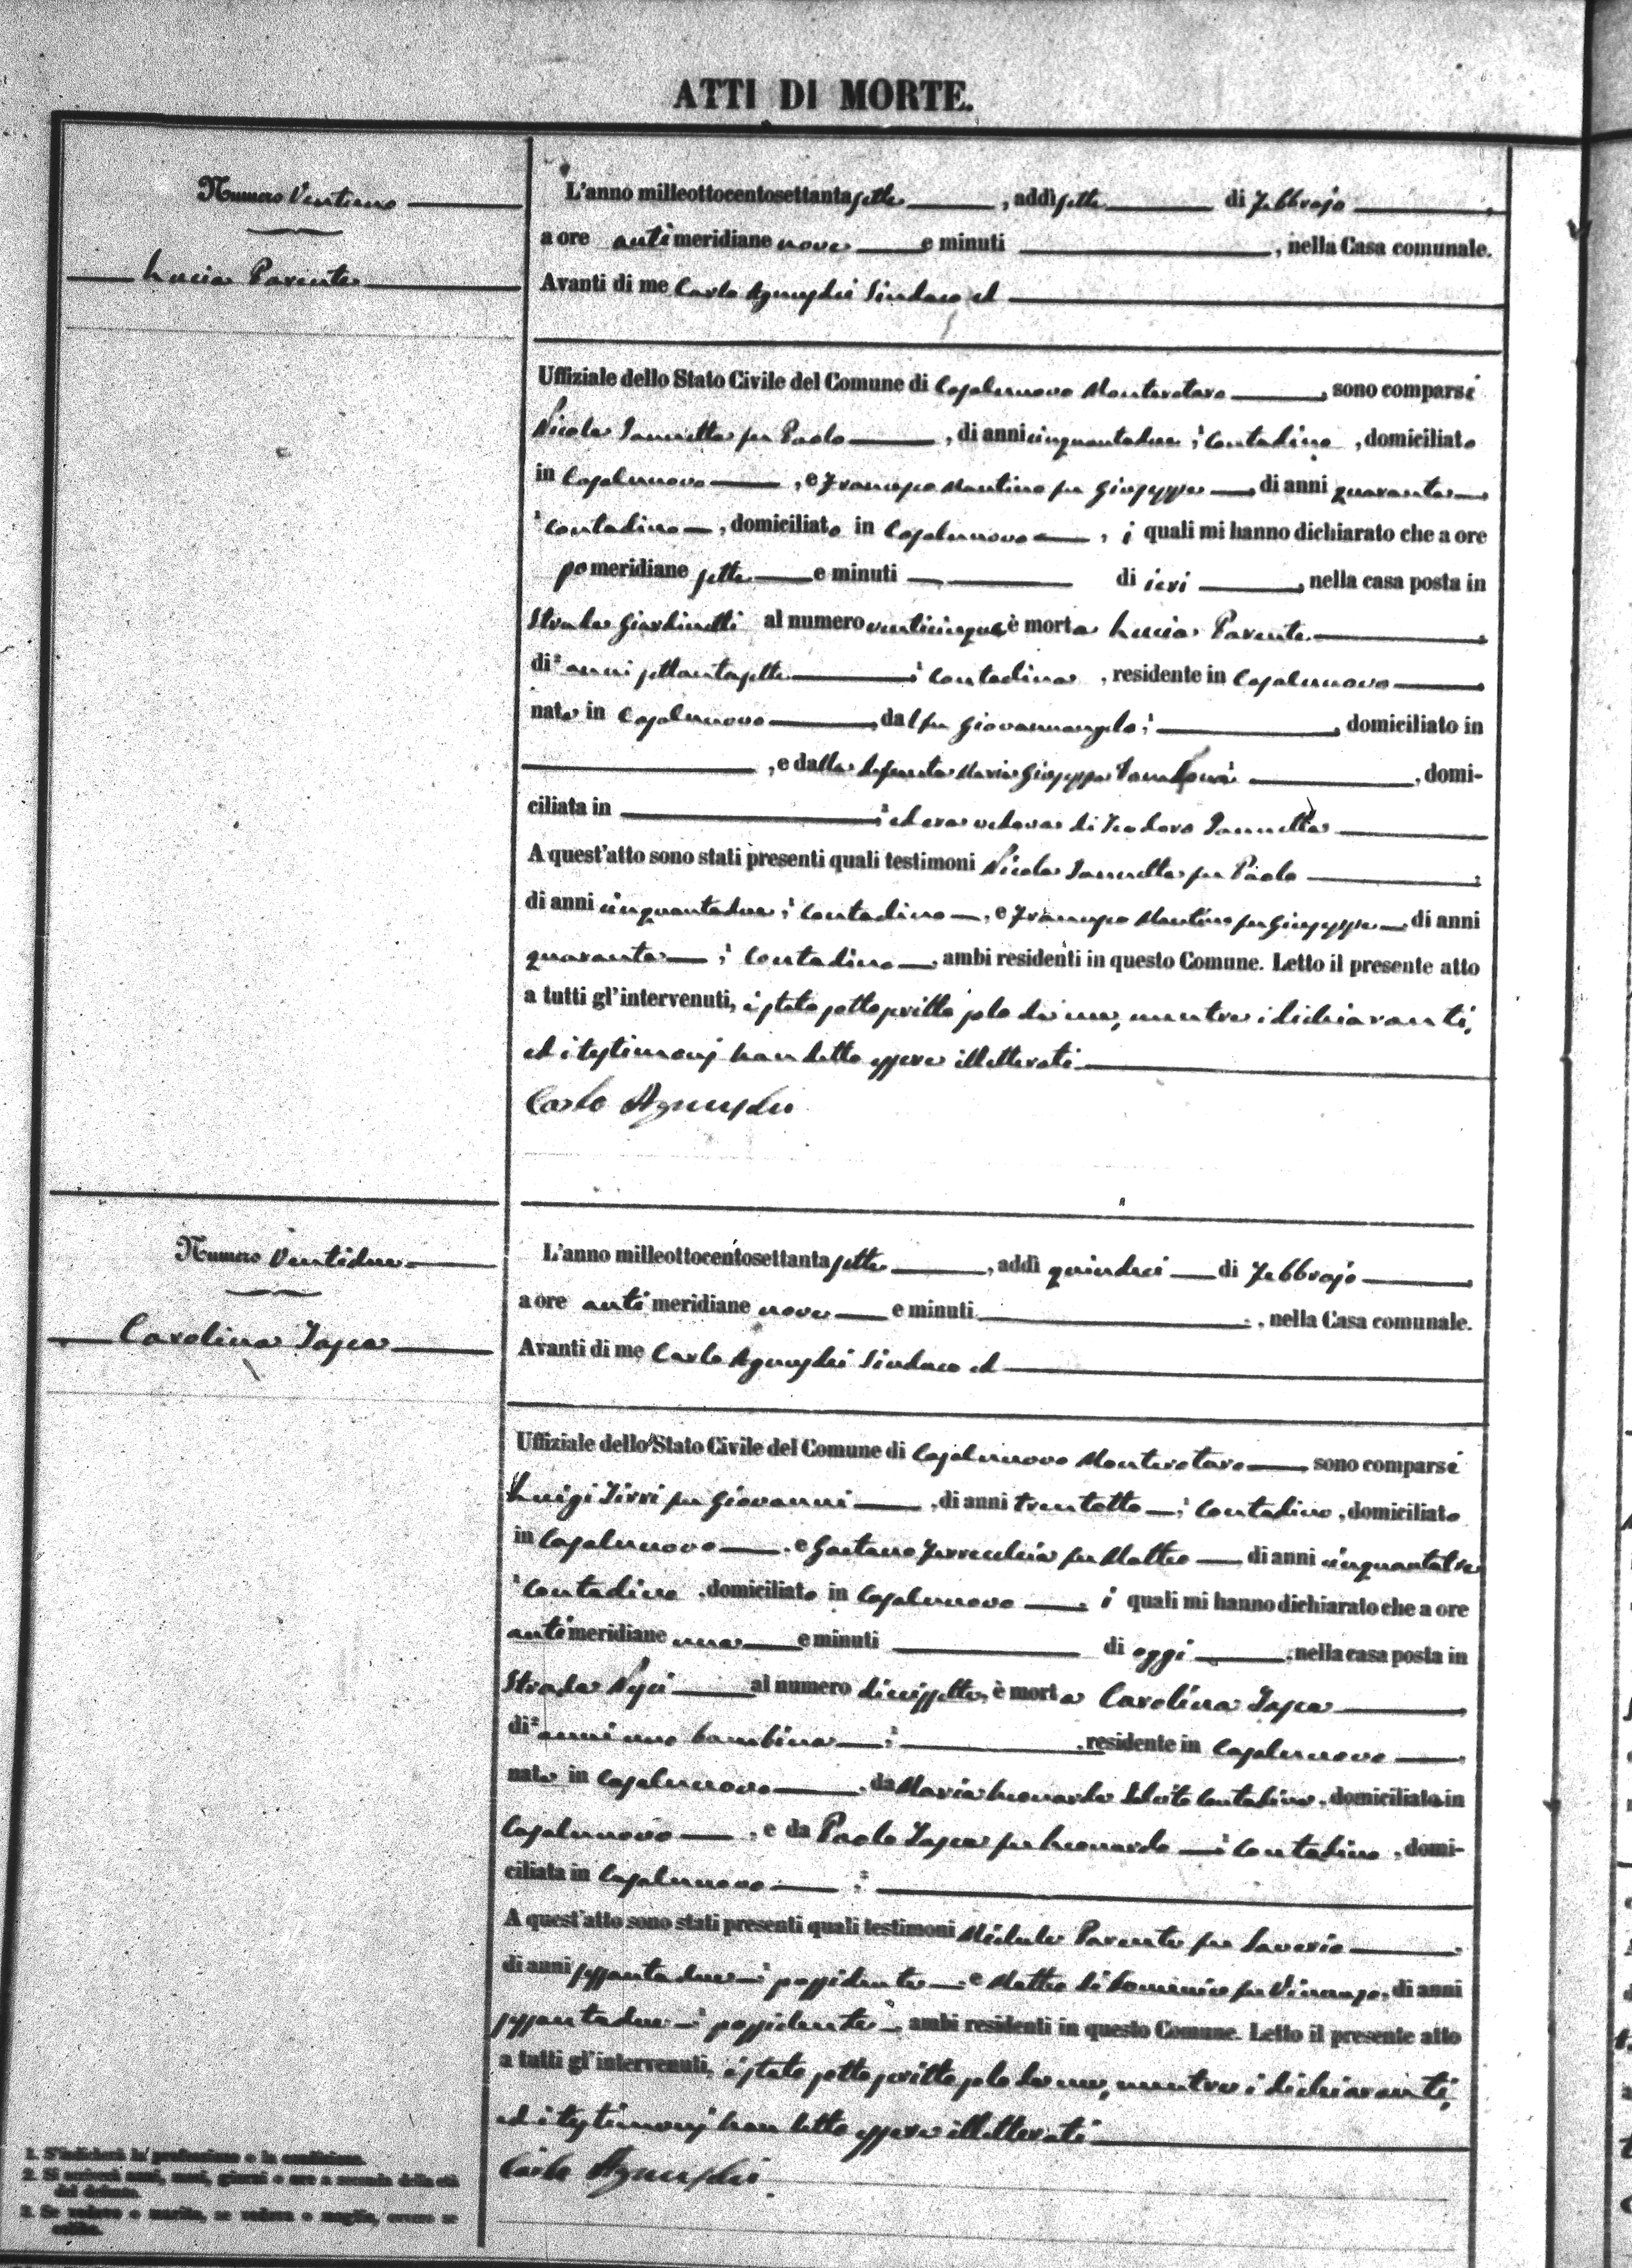 ATTI DI MORTE.
Numero Ventuno
Lucia Parente
L'anno milleottocentosettantasette, addì sette di Febbrajo
a ore antimeridiane nove e minuti, nella Casa comunale.
Avanti di me Carlo Sindaco ed
Uffiziale dello Stato Civile del Comune di Casalnuovo Monterotaro, sono comparsi
Nicola Iannetta fu Paolo, di anni cinquantadue, contadino, domiciliato
in Casalnuovo, e Francesco Mantino fu Giuseppe di anni quaranta
contadino, domiciliato in Casalnuovo, i quali mi hanno dichiarato che a ore
pomeridiane sette e minuti di ieri, nella casa posta in
Strada Giardinetti al numero venticinque, è morta Lucia Parente
di anni settantasette contadina, residente in Casalnuovo
nata in Casalnuovo, dal fu Giovannangelo, domiciliato in
, e dalla defunta Maria Giuseppa, domi-
ciliata in ed era vedova di Teodoro Iannetta
A quest'atto sono stati presenti quali testimoni Nicola Iannetta fu Paolo
di anni cinquantadue, contadino, e Francesco Mantino fu Giuseppe di anni
quaranta, contadino, ambi residenti in questo Comune. Letto il presente atto
a tutti gl'intervenuti, è stato sottoscritto solo da me, mentre i dichiaranti,
ed i testimonj han detto essere illetterati
Carlo
Numero Ventidue
Carolina Tosca
L'anno milleottocentosettantasette, addì quindici di Febbrajo
a ore antimeridiane nove e minuti, nella Casa comunale.
Avanti di me Carlo Sindaco ed
Uffiziale dello Stato Civile del Comune di Casalnuovo Monterotaro sono comparsi
Luigi Tirri fu Giovanni, di anni trentotto, contadino, domiciliato
in Casalnuovo, e Gaetano Ferrecchia fu Matteo di anni cinquantatre
contadino, domiciliato in Casalnuovo, i quali mi hanno dichiarato che a ore
antimeridiane una e minuti di oggi, nella casa posta in
Strada al numero diecissette, è morta Carolina Tosca
di anni uno bambina, residente in Casalnuovo
nata in Casalnuovo, da Maria Leonarda contadina, domiciliata in
Casalnuovo, e da Paolo Tosca fu Leonardo contadino, domi-
ciliata in Casalnuovo
A quest'atto sono stati presenti quali testimoni Michele Parente fu Saverio
di anni sessantadue, possidente, e Matteo di Domenico fu Vincenzo, di anni
sessantadue, possidente, ambi residenti in questo Comune. Letto il presente atto
a tutti gl'intervenuti, è stato sottoscritto solo da me, mentre i dichiaranti,
ed i testimonj han detto essere illetterati
Carlo
1. S'indicherà la professione o la condizione.
2. Si scriverà anni, mesi, giorni o ore a seconda della età
del defunto.
3. Se vedovo o marito, se vedova o moglie, ovvero se
celibe.